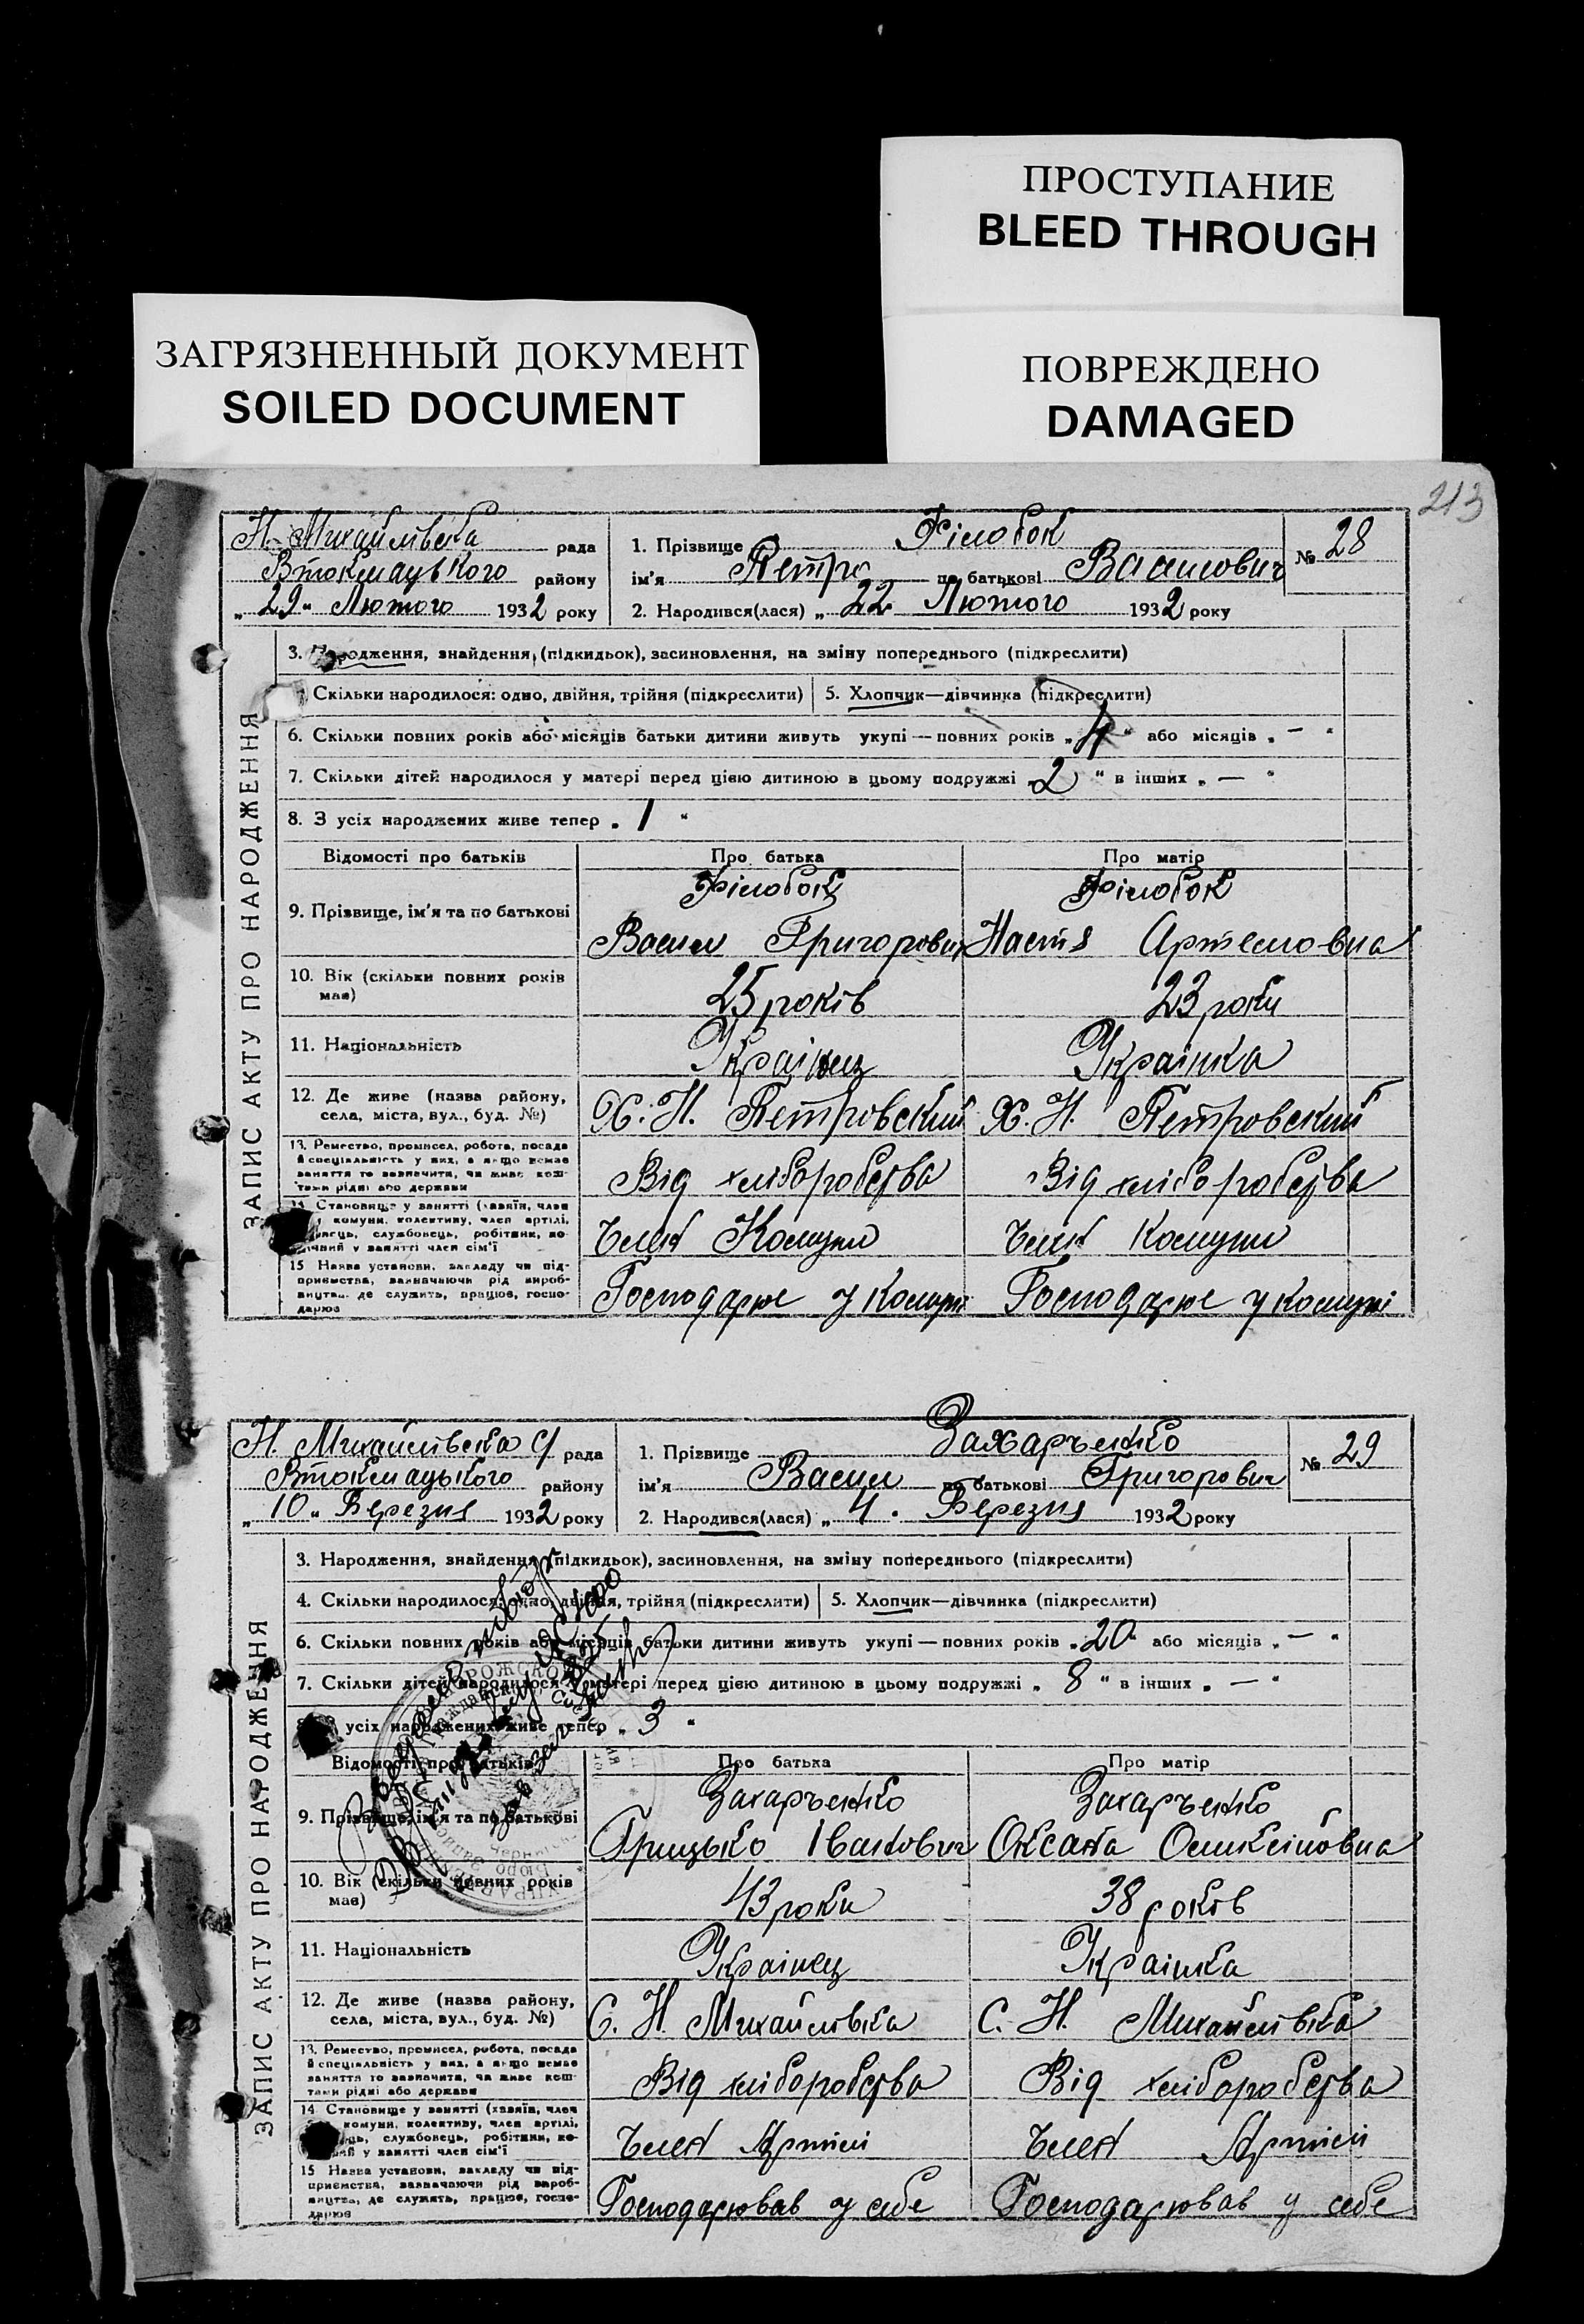 ПРОСТУПАНИЕ
BLEED THROUGH
ЗАГРЯЗНЕННЫЙ ДОКУМЕНТ
SOILED DOCUMENT
ПОВРЕЖДЕНО
DAMAGED
213
ЗАПИС АКТУ ПРО НАРОДЖЕННЯ
Н. Михайлівська рада
Втокмацького району
„29" Лютого 1932 року
1. Прізвище Філобок
ім'я Петро по батькові Васильович
№ 28
2. Народився(лася) „22 Лютого 1932 року
3. Народження, знайдення, (підкидьок), засиновлення, на зміну попереднього (підкреслити)
Скільки народилося: одно, двійня, трійня (підкреслити) 5. Хлопчик—дівчинка (підкреслити)
6. Скільки повних років або місяців батьки дитини живуть укупі—повних років „4" або місяців „—"
7. Скільки дітей народилося у матері перед цією дитиною в цьому подружжі „2" в інших „—"
8. З усіх народжених живе тепер „1"
Відомості про батьків Про батька Про матір
9. Прізвище, ім'я та по батькові
Філобок Філобок
Васил Григорович Настя Артемовна
10. Вік (скільки повних років має)
25 років 23 роки
11. Національність
Українец Українка
12. Де живе (назва району, села, міста, вул., буд. №)
Х. Н. Петровский Х. Н. Петровский
13. Ремество, промисел, робота, посада й спеціальність у них, а якщо немає заняття то зазначити, чи живе коштами рідні або держави
Від хліборобства Від хліборобства
14 Становище у занятті (хазяїн, член комуни, колективу, член артілі, службовець, робітник, член сім'ї
Член Комуни Член Комуни
15 Назва установи, закладу чи підприємства, зазначаючи рід виробництва, де служить, працює, господарює
Господарює у комуні Господарює у комуні
ЗАПИС АКТУ ПРО НАРОДЖЕННЯ
Н. Михайлівська с/ рада
Втокмацького району
„10" Березня 1932 року
1. Прізвище Захаръенко
ім'я Васил по батькові Григорович
№ 29
2. Народився(лася) „4" Березня 1932 року
3. Народження, знайдення (підкидьок), засиновлення, на зміну попереднього (підкреслити)
4. Скільки народилося: одно, двійня, трійня (підкреслити) 5. Хлопчик—дівчинка (підкреслити)
6. Скільки повних років або місяців батьки дитини живуть укупі—повних років „20" або місяців „—"
7. Скільки дітей народилося у матері перед цією дитиною в цьому подружжі „8" в інших „—"
усіх народжених живе тепер „3"
Відомості про батьків Про батька Про матір
9. Прізвище, ім'я та по батькові
Захаръенко Захаръенко
Грицько Іванович Оксана
10. Вік (скільки повних років має)
43 роки 38 років
11. Національність
Українец Українка
12. Де живе (назва району, села, міста, вул., буд. №)
С. Н. Михайлівка С. Н. Михайлівка
13. Ремество, промисел, робота, посада й спеціальність у них, а якщо немає заняття то зазначити, чи живе коштами рідні або держави
Від хліборобства Від хліборобства
14 Становище у занятті (хазяїн, член комуни, колективу, член артілі, службовець, робітник, член сім'ї
Член Артілі Член Артілі
15 Назва установи, закладу чи підприємства, зазначаючи рід виробництва, де служить, працює, господарює
Господарював у себе Господарював у себе